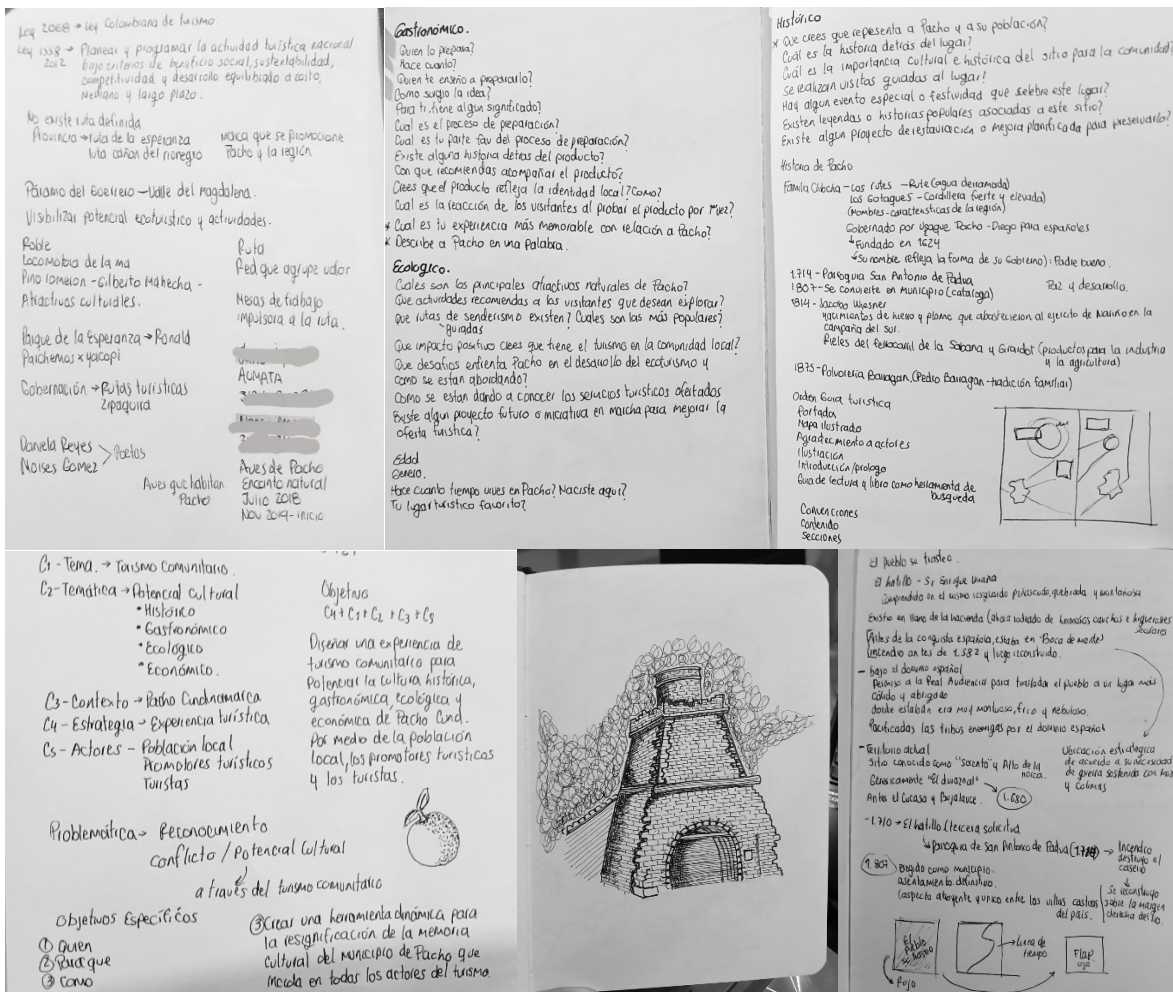 Ley 2068 → Ley Colombiana de turismo.
Ley 1558 → Planear y programar la actividad turística nacional
2012 bajo criterios de beneficio social, sustentabilidad,
competitividad y desarrollo equilibrado a corto,
mediano y largo plazo.
No existe ruta definida
Provincia → ruta de la esperanza
ruta cañon del rionegro
marca que se promocione
Pacho y la región
Páramo del Guerrero – Valle del Magdalena.
Visibilizar potencial ecoturistico y actividades.
Roble
Locomotora de la
Pino - Gilberto Mahecha -
Atractivos culturales.
Parque de la Esperanza → Ronald
Paichemos x yacopi
Gobernación → Rutas turísticas
Zipaquira
Daniela Reyes
Moises Gomez
Poetas
Aves que habitan
Pacho
Ruta
Red que agrupe
Mesas de trabajo
impulsora a la ruta.
ACMATA
Aves de Pacho
Encanto natural
Julio 2018
Nov 2019 - inicio
Gastronómico.
Quien lo prepara?
Hace cuanto?
Quien te enseño a prepararlo?
Como surgio la idea?
Para ti, tiene algun significado?
Cual es el proceso de preparación?
Cual es tu parte fav del proceso de preparación?
Existe alguna historia detras del producto?
Con que recomiendas acompañar el producto?
Crees que el producto refleja la identidad local? Como?
Cual es la reacción de los visitantes al probar el producto por 1ª vez?
* Cual es tu experiencia más memorable con relación a Pacho?
* Describe a Pacho en una palabra.
Ecologico.
Cuales son los principales atractivos naturales de Pacho?
Que actividades recomiendas a los visitantes que desean explorar?
Que rutas de senderismo existen? Cuales son las más populares?
guiadas
Que impacto positivo crees que tiene el turismo en la comunidad local?
Que desafios enfrenta Pacho en el desarrollo del ecoturismo y
como se estan abordando?
Como se estan dando a conocer los servicios turisticos ofertados
Existe algun proyecto futuro o iniciativa en marcha para mejorar la
oferta turistica?
Edad
Genero.
Hace cuanto tiempo vives en Pacho? Naciste aqui?
Tu lugar turistico favorito?
Histórico
* Que crees que representa a Pacho y a su población?
Cuál es la historia detrás del lugar?
Cuál es la importancia cultural e histórica del sitio para la comunidad?
Se realizan visitas guiadas al lugar?
Hay algun evento especial o festividad que selebre este lugar?
Existen leyendas o historias populares asociadas a este sitio?
Existe algun proyecto de restauración o mejora planificada para preservarlo?
Historia de Pacho
Familia Chibcha - Los rutes - Rute (agua derramada)
Los Gotaques - Cordillera fuerte y elevada)
(Nombres - caracteristicas de la región)
Gobernado por Ugaque Pacho - Diego para españoles
↳ Fundado en 1624
↳ Su nombre refleja la forma de su Gobierno): Padre bueno.
1.714 - Paroquia San Antonio de Padua
Paz y desarrollo.
1807 - Se convierte en Municipio (Cataloga)
1814 - Jacobo Wiesner
yacimientos de hierro y plomo que abastecieron al ejercito de Nariño en la
campaña del sur.
Rieles del ferrocarril de la Sabana y Girardot (productos para la industria
y la agricultura)
1875 - Polvoreria Barragan. (Pedro Barragan - tradición familiar)
Orden Guia turistica
Portada
Mapa ilustrado
Agradecimiento a actores
Ilustración
Introducción/prologo
Guia de lectura y libro como herramienta de
busqueda
Convenciones
Contenido
Secciones
C1 - Tema. → Turismo Comunitario.
C2 - Temática → Potencial Cultural
• Histórico
• Gastronómico
• Ecológico
• Económico.
C3 - Contexto → Pacho Cundinamarca
C4 - Estrategia → Experiencia turística
C5 - Actores - Población local
Promotores turísticos
Turistas
Objetivo
C4 + C1 + C2 + C3 + C5
Diseñar una experiencia de
turismo comunitario para
Potenciar la cultura histórica,
gastronómica, ecológica y
económica de Pacho Cund.
Por medio de la población
local, los promotores turísticos
y los turistas.
Problemática → Reconocimiento
conflicto / Potencial Cultural
a través del turismo comunitario
Objetivos Específicos
① Quien
② Para que
③ Como
③ Crear una herramienta dinámica para
la resignificación de la memoria
cultural del municipio de Pacho que
incida en todos los actores del turismo
El pueblo se trasteo.
El hatillo - Sr Enrique Umaña
Comprendido en el mismo resguardo peñascudo, quebrada y montañosa
Existio en llano de la hacienda (ahora rodeado de hermosos cauchos e higuerones
seculares
(Antes de la conquista española, estaba en "Boca de monte)
Incendio antes de 1.582 y luego reconstruido.
- Bajo el dominio español
Permiso a la Real Audiencia para trasladar el pueblo a un lugar más
cálido y abrigado
donde estaban era muy montuoso, frio y nebuloso.
Pacificadas las tribus enemigas por el dominio español
- Territorio actual
Sitio conocido como y Alto de la
horca.
Genericamente "El duraznal" → 1.680
Antes el Cucasa y Bujaluce.
Ubicación estrategica
de acuerdo a su necesidad
de guerra sostenida con
y Colimas
- 1.710 → El hatillo (tercera solicitud
↳ paroquia de San Antonio de Padua → Incendio
destruyo el
caserio
1.807 Erigido como municipio.
asentamiento definitivo.
(aspecto atrayente y unico entre las villas
del pais.
Se reconstruyo
sobre la margen
derecha del rio.
El
Pueblo
se trasteo
Rojo
→ Linea de
tiempo
Flap.